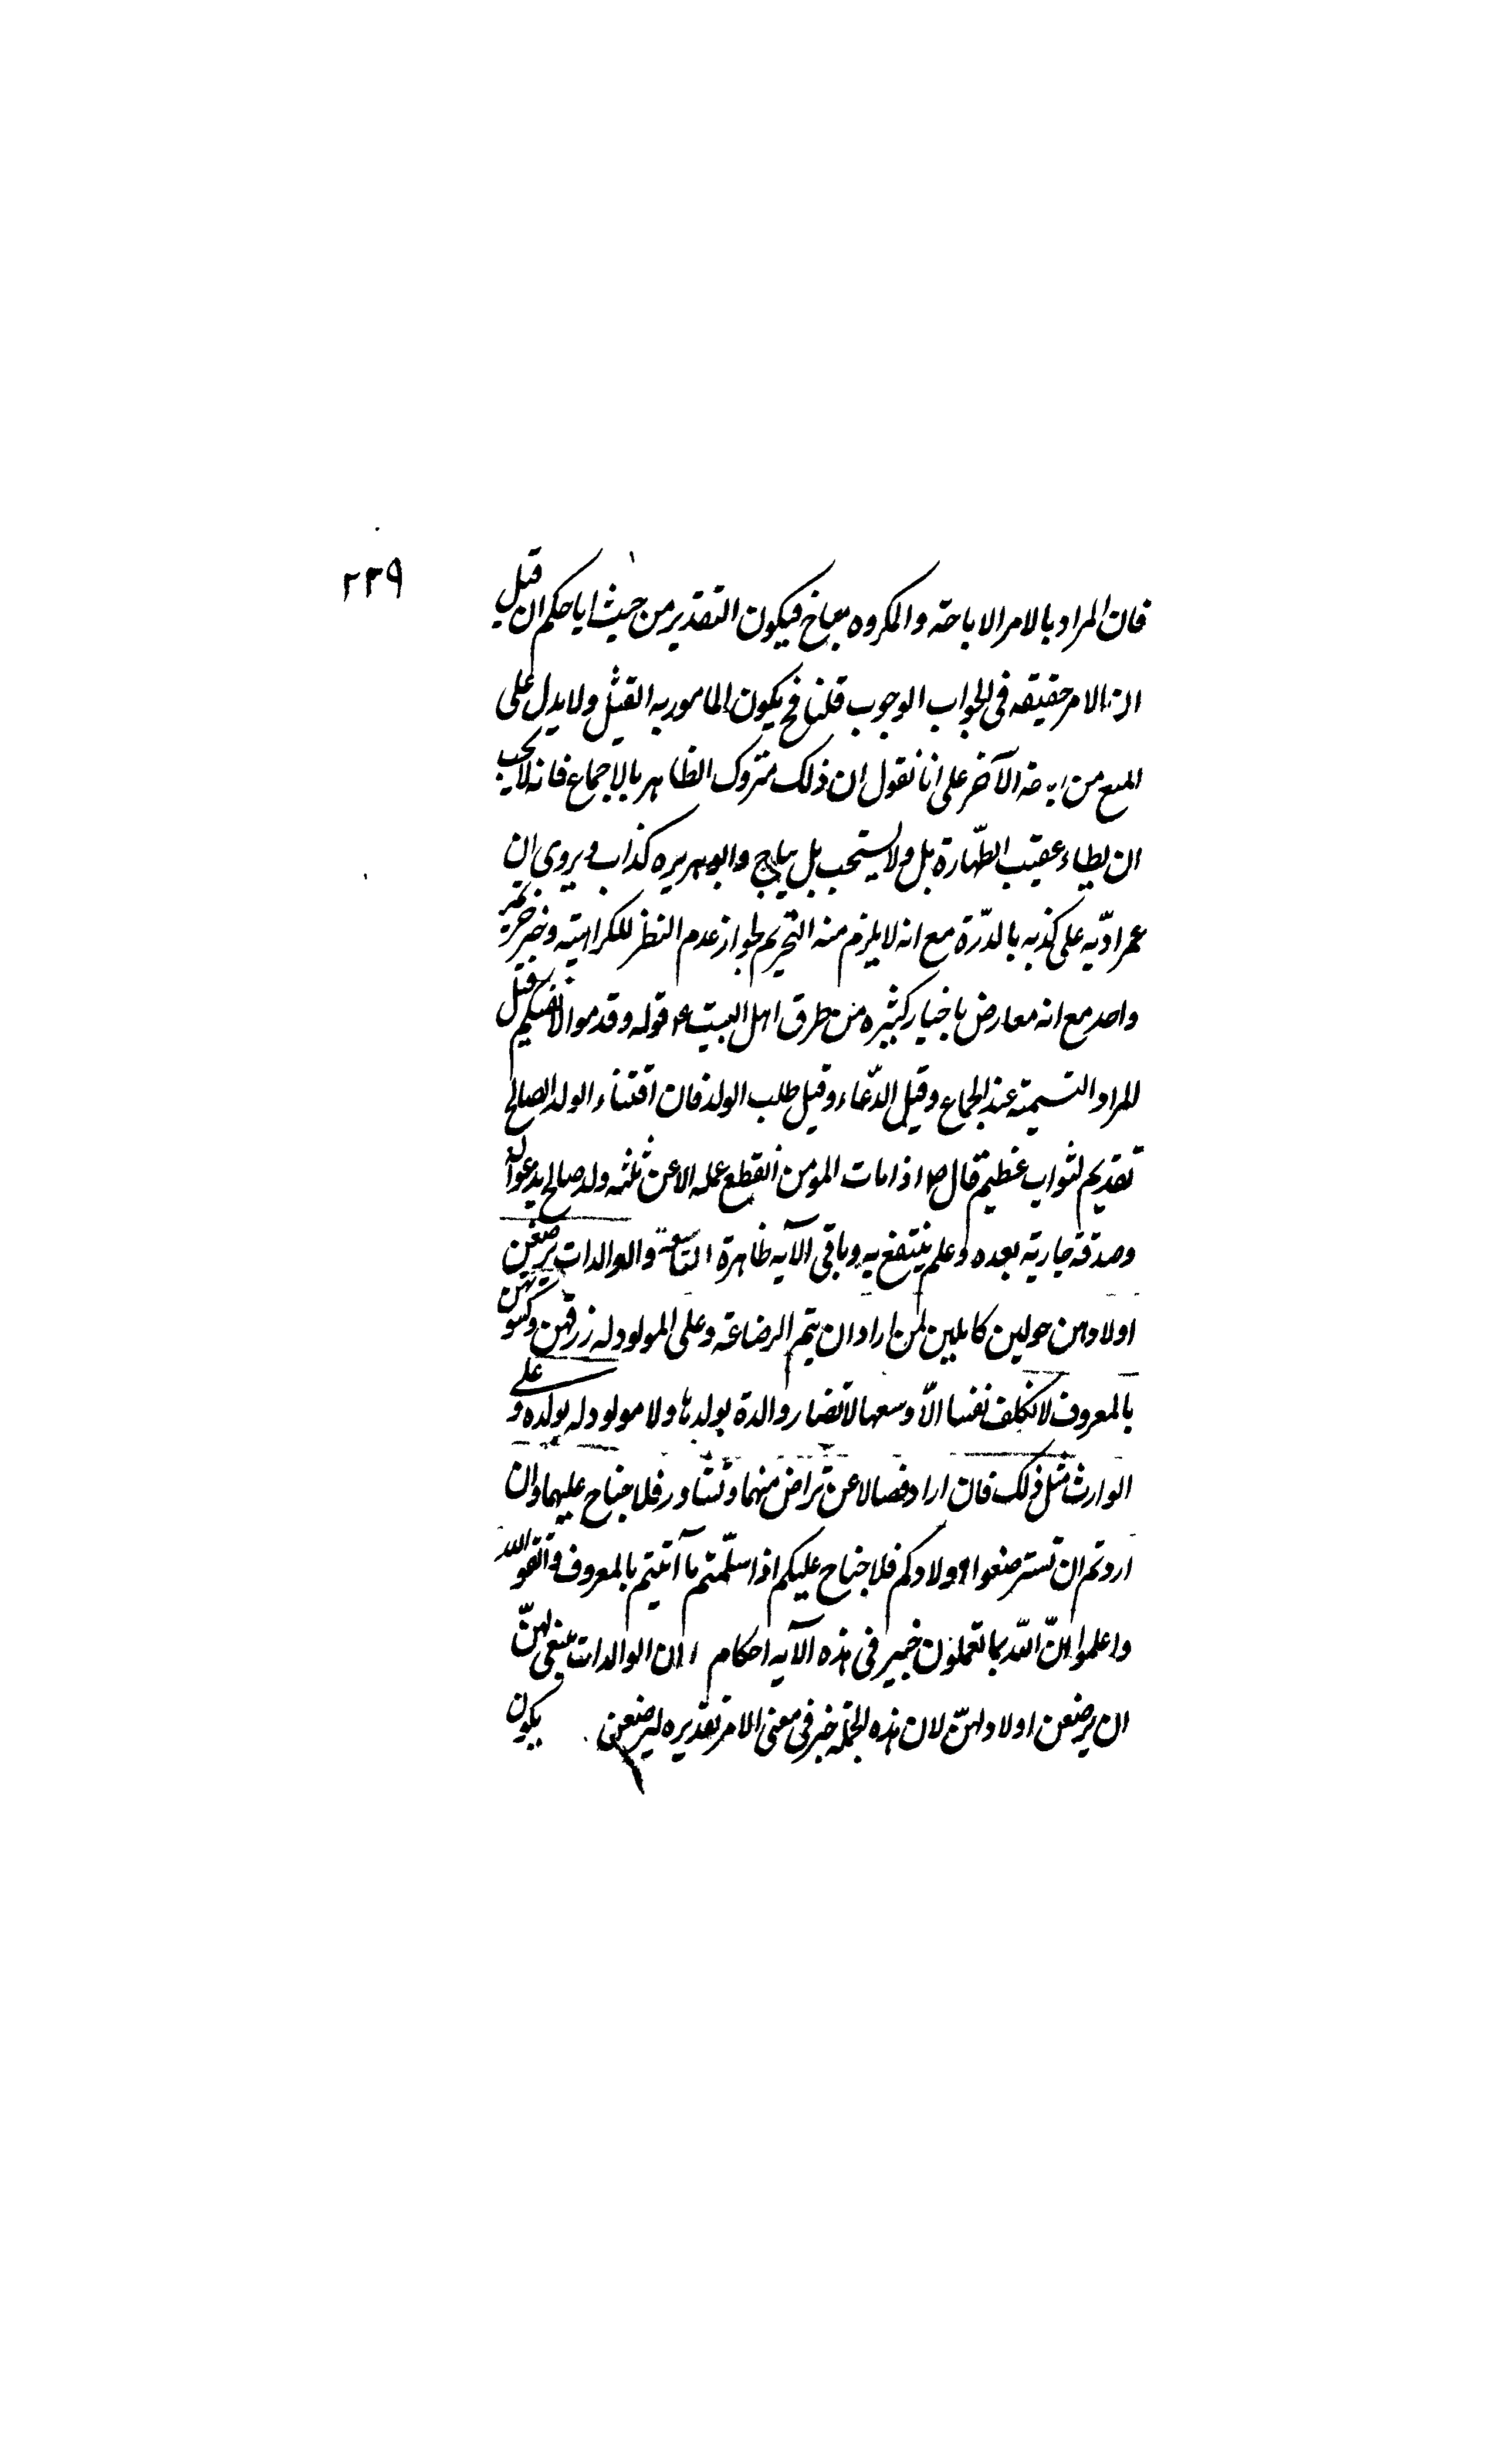 ٢٣٩
فان المراد بالامر الاباحة والمكروه مباح فيكون التقدير من حيث اباحكم ان قيل
ان الامر حقيقه فى الجواب الوجوب قلنا فح يكون المامور به القبل ولا يدل على
المنع من اباحة الآخر على انا نقول ان ذلك متروك الظاهر بالاجماع فانه لا يجب
ان يطاء عقيب الطّهارة بل ولا يستحب بل يباح وابو هريره كذاب ويروى ان
عمر ادّبه على كذبه بالدّرة مع انه لا يلزم منه التحريم لجواز عدم النظر للكراهية وخبر خزيمة
واحد مع انه معارض باخبار كثيره من طرق اهل البيت ع قوله وقدموا لانفسكم قيل
المراد التسمية عند الجماع وقيل الدّعاء وقيل طلب الولد فان اقتناء الولد الصالح
تقديم لثواب عظيم قال ص اذا مات المومن انقطع عمله الا عن ثلثه ولد صالح يدعوا له
وصدقة جارية بعده وعلم ينتفع به وباقى الآيه ظاهرة التاسعة والوالدات يرضعن
اولادهن حولين كاملين لمن اراد ان يتم الرضاعة وعلى المولود له رزقهن وكسوتهن
بالمعروف لا تكلف نفسا الّا وسعها لا تضار والدة بولدها ولا مولود له بولده وعلى
الوارث مثل ذلك فان ارادا فصالا عن تراض منهما وتشاور فلا جناح عليهما وان
اردتم ان تسترضعوا اولادكم فلا جناح عليكم اذا سلّمتم ما آتيتم بالمعروف واتقوا الله
واعلموا انّ الله بما تعملون خبير فى هذه الآيه احكام ا ان الوالدات ينبغى لهنّ
ان يرضعن اولادهنّ لان هذه الجملة خبر فى معنى الامر تقديره ليرضعن
يكون